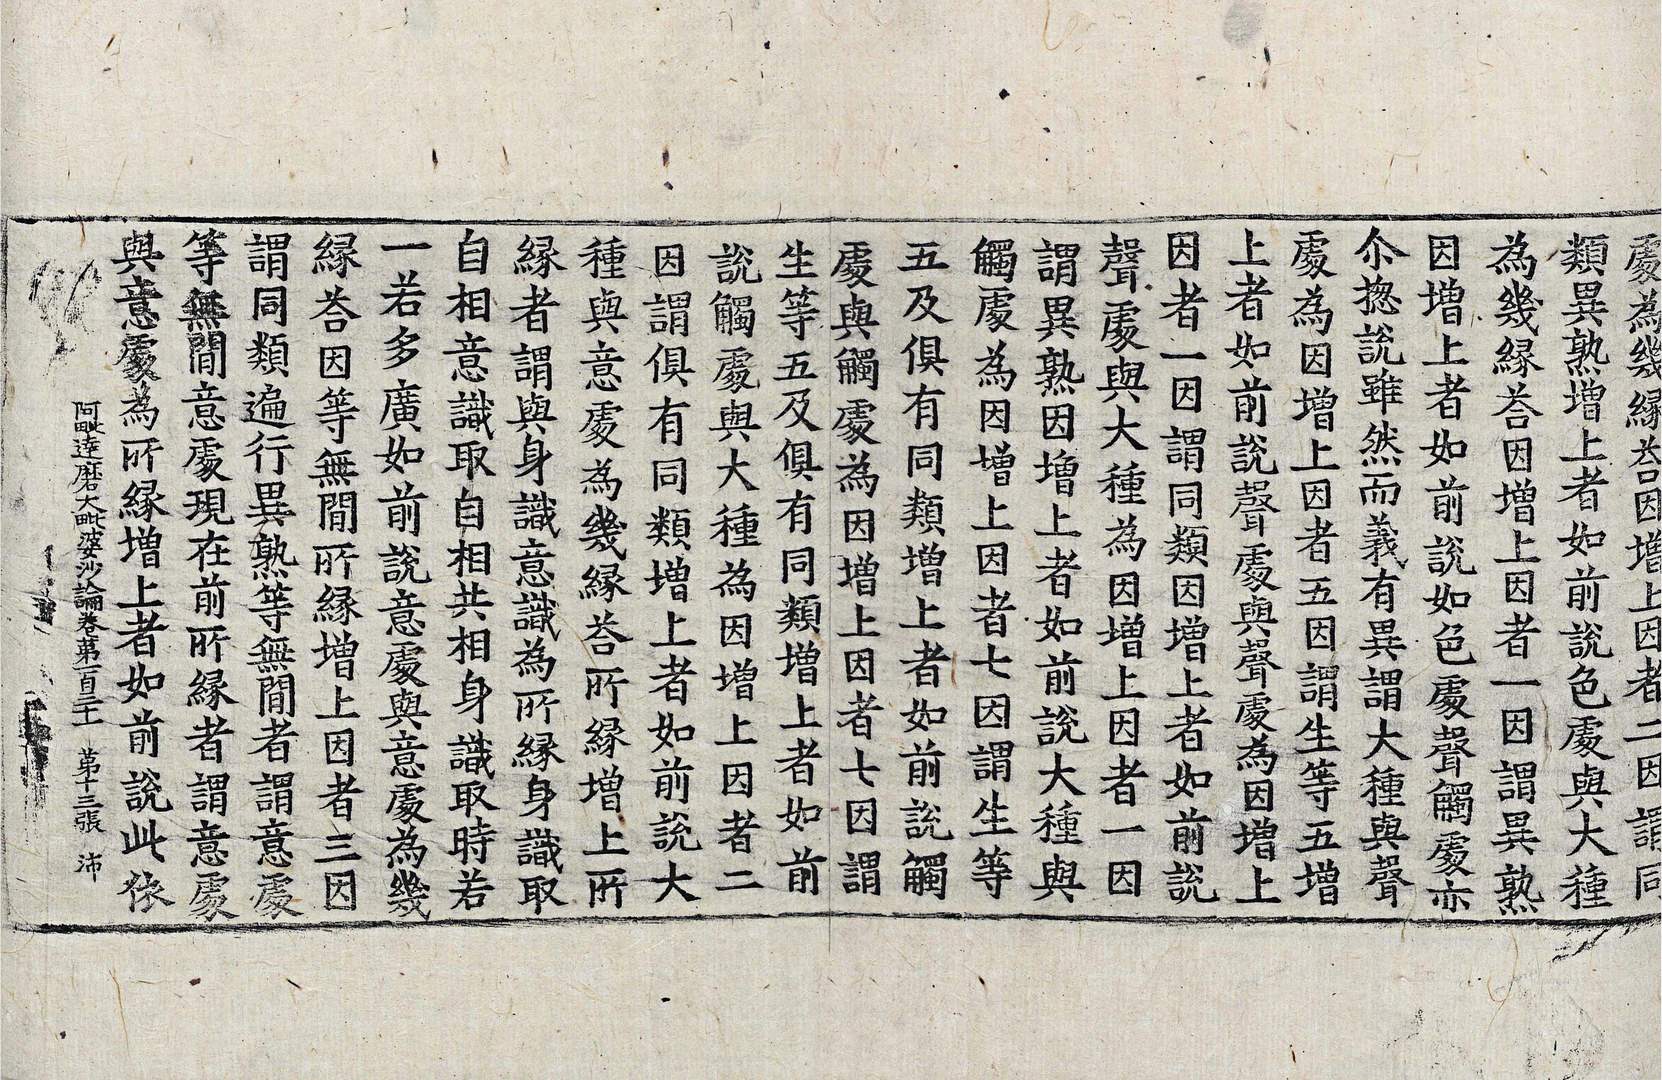 處為幾縁荅因增上因者二因謂同
類異熟增上者如前說色處與大種
為幾縁荅因增上因者一因謂異熟
因增上者如前說如色處聲觸處亦
尒揔說雖然而義有異謂大種與聲
處為因增上因者五因謂生等五增
上者如前說聲處與聲處為因增上
因者一因謂同類因增上者如前說
聲處與大種為因增上因者一因
謂異熟因增上者如前說大種與
觸處為因增上因者七因謂生等
五及俱有同類增上者如前說觸
處與觸處為因增上因者七因謂
生等五及俱有同類增上者如前
說觸處與大種為因增上因者二
因謂俱有同類增上者如前說大
種與意處為幾縁荅所縁增上所
縁者謂與身識意識為所縁身識取
自相意識取自相共相身識取時若
一若多廣如前說意處與意處為幾
縁荅因等無間所縁增上因者三因
謂同類遍行異熟等無間者謂意處
等無間意處現在前所縁者謂意處
與意處為所縁增上者如前說此依
阿毗達磨大毗婆沙論卷第一百三十二 第十三張 沛